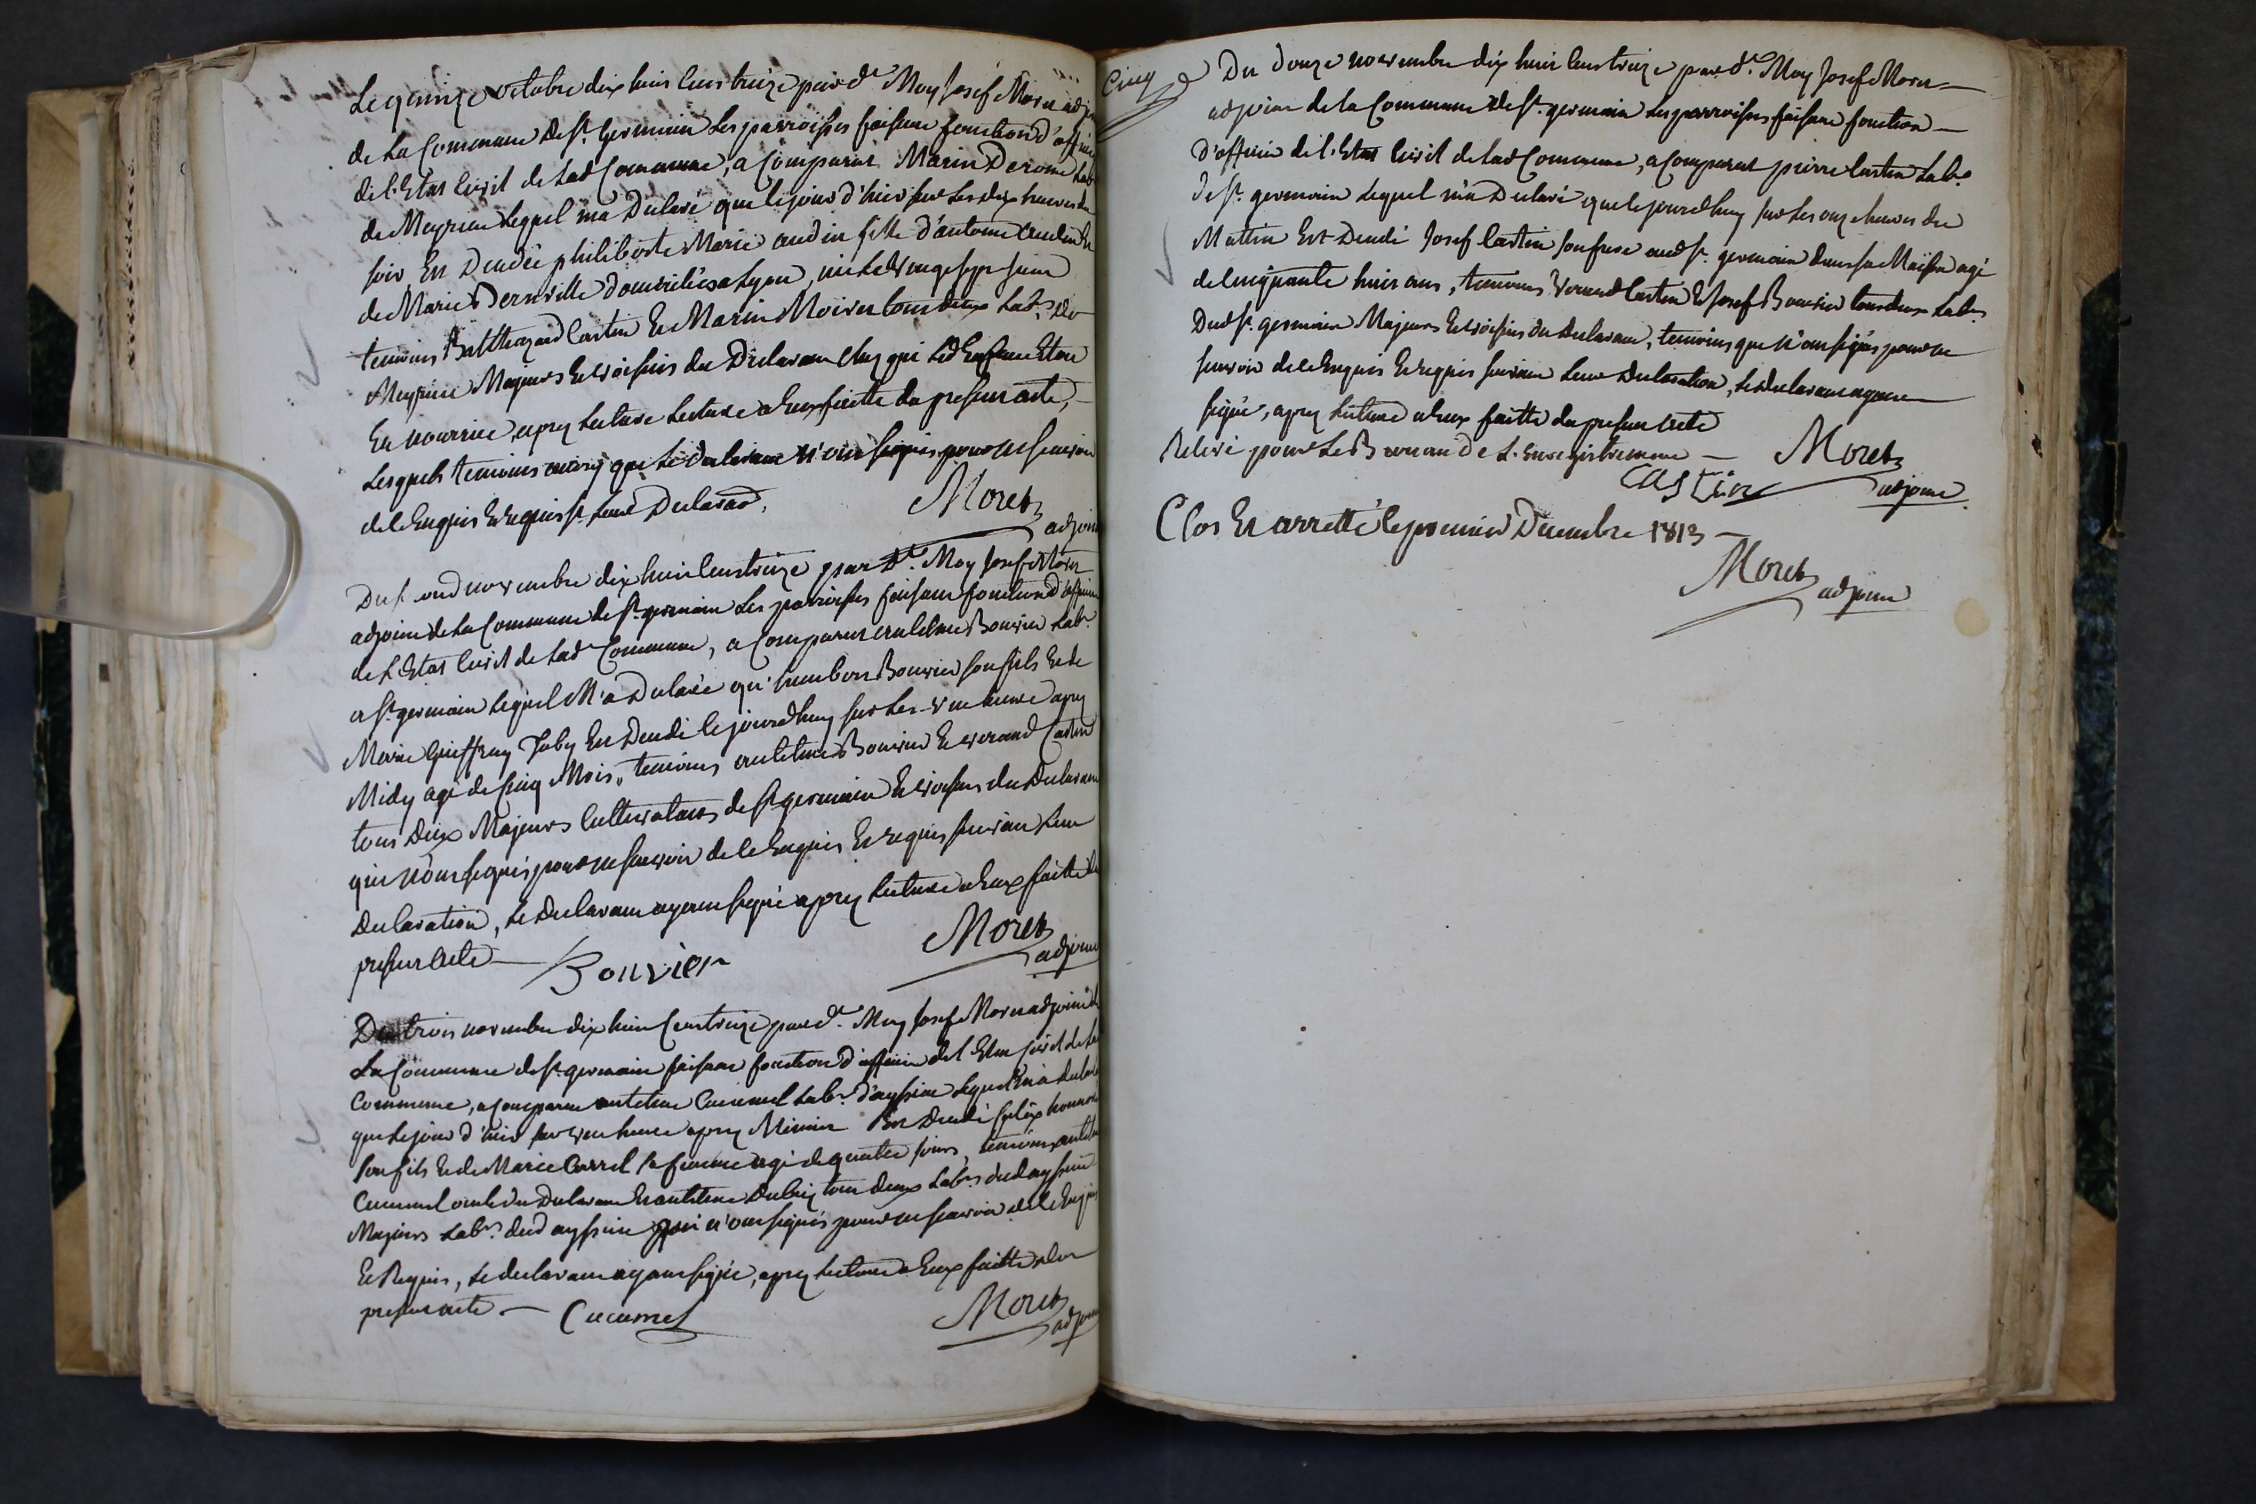 Le quinze octobre dix huit cent treize par dt. Moy Josef Moret adj
de la Commune de St. Germain Les parroisses faisant fonction d'officier
de l'Etat Civil de lad Commune, a Comparut Marin Derome Labr
de Meyrieu Lequel m'a Déclaré que le jour d'hier sur Les dix heures du
soir Est Décédée philiberte Marie audin fille d'antoine audin Et
de Marie Bernville domiciliés a Lyon,
temoins Balthazard Castin Et Marin Moiret tous deux Labrs. De
Meyrieu Majeurs Et voisins du Déclarant chez qui led Enfant Etoit
En nourrice, aprez Lecture Lecture a Eux faitte du present acte,
Lesquels temoins ainsy que Le déclarant N'ont signés pour ne sçavoir
de ce Enquis Et requis st. Leur Déclaron.
Moret
adjoint
Du second novembre dix huit cent treize par Dt. Moy Josef Moret
adjoint de la Commune de St. germain Les parroisses faisant fonction d'officier
de L'Etat Civil de Lad Commune, a Comparut antelme Bouvier Labr.
a St. germain Lequel M'a Déclaré qu'humbert Bouvier son fils Et de
Marie Geuffray Joby Est Decedé le jourdhuy sur Les une heure aprez
Midy agé de Cinq Mois, temoins antelme Bouvier Et verand Castin
tous Deux Majeurs Cultivateurs de St. germain Et voisins du Déclarant
qui N'ont signés pour ne sçavoir de ce Enquis Et requis suivant Leur
Declaration, Le Declarant ayant signé aprez Lecture a Eux faitte du
present acte — Bouvier
Moret
adjoint
Du trois novembre dix huit Cent treize par dt. Moy Josef Moret adjoint de
La Commune de St. germain faisant fonction d'officier de l'Etat Civil de La
Commune, a Comparut antelme Cucumel Labr. d'ayssin Lequel m'a déclaré
que Le jour d'hier sur une heure aprez Minuit Est Decedé
son fils Et de Marie Carrel sa femme agé de quatre jours, temoins antelme
Cucumel oncle du Declarant Et antelme Dubuy tous deux Labrs. dud ayssin
Majeurs Labrs. dud ayssin qui n'ont signés pour ne sçavoir de ce Enquis
Et Requis, Le declarant ayant signé, aprez Lecture a Eux faitte du
present acte. — Cucumel
Moret
adjoint
Cinq
Du Douze novembre dix huit cent treize par dt. Moy Josef Moret
adjoint de la Commune de St. germain Les parroisses faisant fonction
d'officier de l'Etat Civil de lad Commune, a Comparut pierre Castin Labr.
de St. germain Lequel m'a Declaré que le jourdhuy sur Les onze heures du
Mattin Est Decedé Josef Castin son frere aud St. germain dans sa Maison agé
de Cinquante huit ans, temoins Verand Castin Et Josef Bouvier tous deux Labrs
Dud St. germain Majeurs Et voisins du Declarant, temoins que N'ont signés pour ne
sçavoir de ce Enquis Et requis suivant Leur Declaration, Le Declarant ayant
signé, aprez Lecture a Eux faitte du present acte
Relevé pour Le Bureau de L'Enregistrement — Moret
Castin adjoint
Clos Et arretté le premier Décembre 1813 —
Moret
adjoint